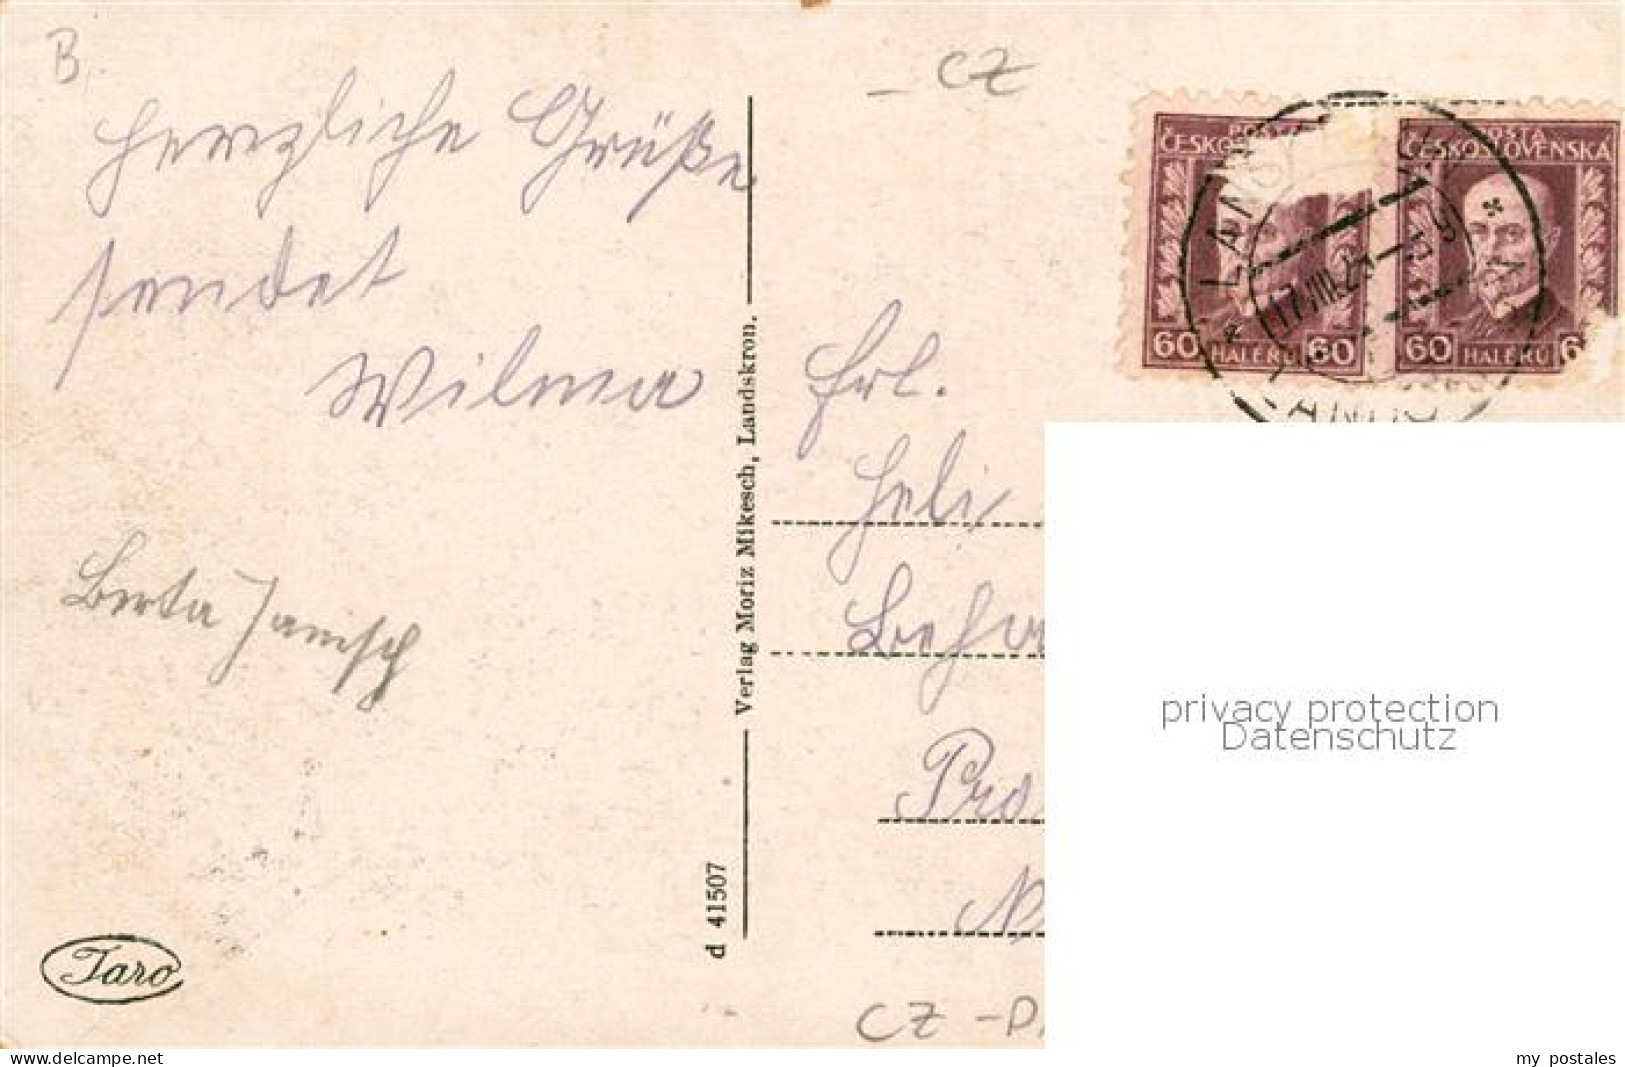 B.
CZ
Herzliche Grüße
sendet
Wilma
Berta Janisch
Verlag Moriz Mikesch, Landskron.
d 41507
Taro
POSTA
ČESKOSLOVENSKÁ
60 HALÉŘŮ 60
POSTA
ČESKOSLOVENSKÁ
60 HALÉŘŮ 6
17.VIII.29
Frl.
Heli
Pro
CZ
privacy protection
Datenschutz
www.delcampe.net
my_postales